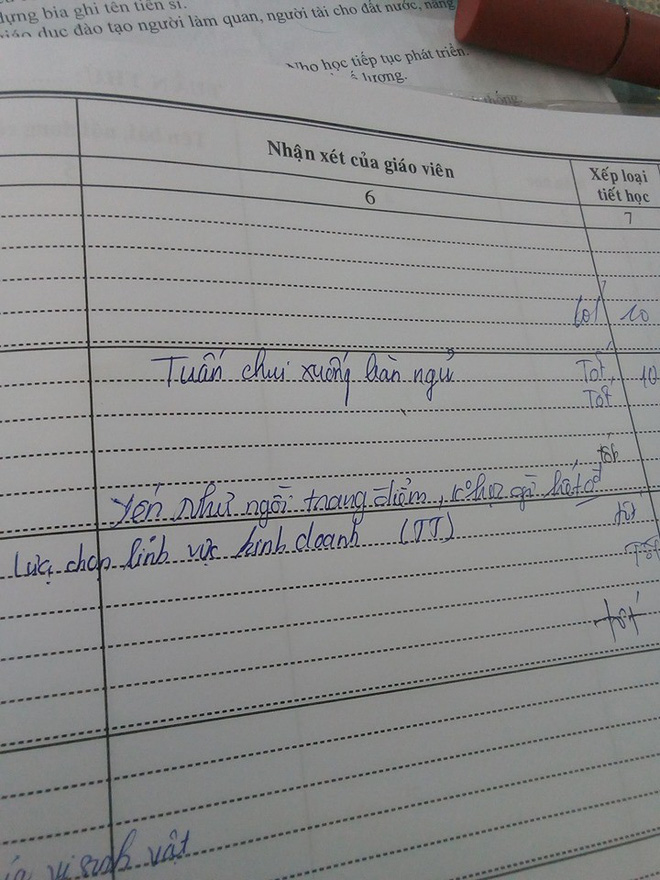 dựng bia ghi tên tiến sĩ.
giáo dục đào tạo người làm quan, người tài cho đất nước, nâng
Nho học tiếp tục phát triển.
số lượng.
Nhận xét của giáo viên
Xếp loại
tiết học
6
7
tốt 10
Tuấn chui xuống bàn ngủ
Tốt 10
Tốt
tốt
Yến như ngồi trang điểm, k học gì hết cả
tốt
Lựa chọn lĩnh vực kinh doanh (TT)
Tốt
tốt
vi sinh vật